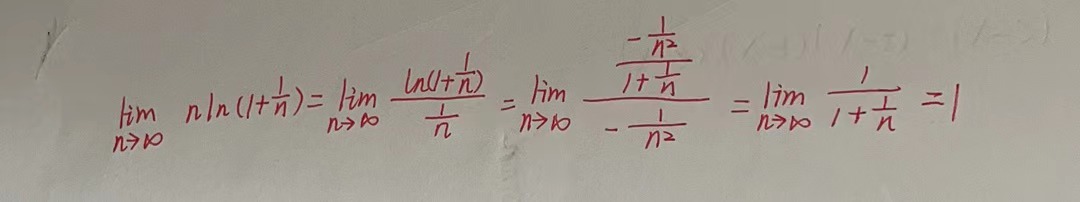 lim_{n→∞} n ln(1+\frac{1}{n}) = lim_{n→∞} \frac{ln(1+\frac{1}{n})}{\frac{1}{n}} = lim_{n→∞} \frac{\frac{-\frac{1}{n^2}}{1+\frac{1}{n}}}{-\frac{1}{n^2}} = lim_{n→∞} \frac{1}{1+\frac{1}{n}} = 1